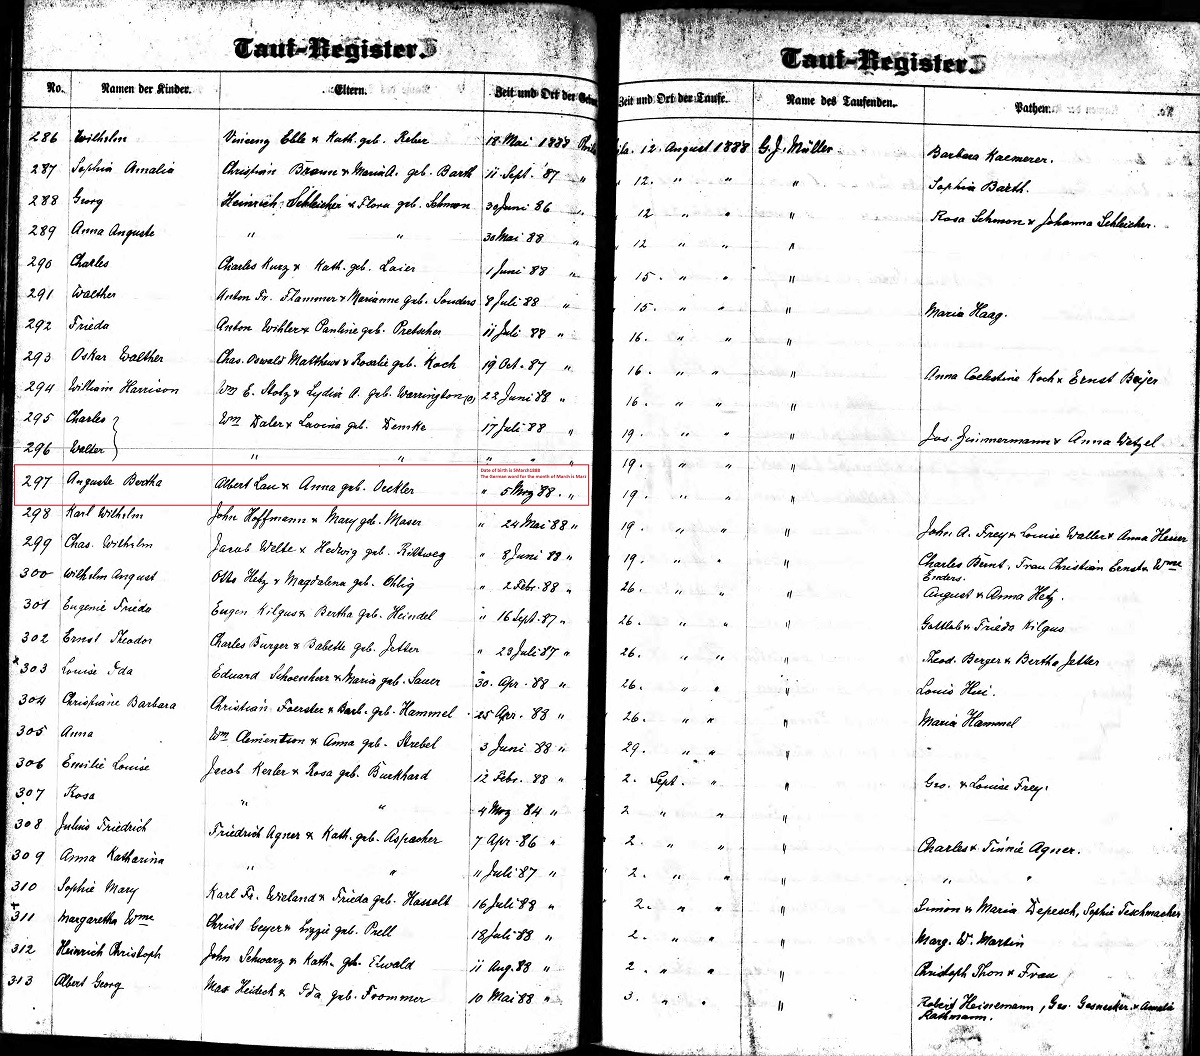 Tauf-Register.
No. Namen der Kinder. Eltern. Zeit und Ort der
286 Wilhelm Vincenz Eble & Kath. geb. Reber 18 Mai 1888
287 Sophia Amalia Christian Braune & Maria A. geb. Barth 11 Sept. '87 "
288 Georg Heinrich Schleicher & Flora geb. Schmon 3 Juni 86 "
289 Anna Auguste " " 30 Mai 88 "
290 Charles Charles Kurz & Kath. geb. Laier 1 Juni 88 "
291 Walther Anton Fr. Flammer & Marianne geb. Souders 8 Juli 88 "
292 Frieda Anton Wihler & Pauline geb. Pretscher 11 Juli 88 "
293 Oskar Walther Chas. Oswald Matthews & Rosalie geb. Koch 19 Oct. 87 "
294 William Harrison Wm E. Stotz & Lydia A. geb. Warrington 22 Juni 88 "
295 Charles Wm Daler & Lavina geb. Demke 17 Juli 88 "
296 Walter " " " " "
Date of birth is 5March1888
The German word for the month of March is Marz
297 Auguste Bertha Albert Lau & Anna geb. Oekler " 5 Mrz 88 . "
298 Karl Wilhelm John Hoffmann & Mary geb. Maser " 24 Mai 88 "
299 Chas. Wilhelm Jacob Welte & Hedwig geb. Rittweg " 8 Juni 88 "
300 Wilhelm August Otto Hetz & Magdalena geb. Ohlig " 2 Febr. 88 "
301 Eugenie Frieda Eugen Kilgus & Bertha geb. Heindel " 16 Sept. 87 "
302 Ernst Theodor Charles Burger & Babette geb. Jetter " 29 Juli 87 "
303 Louise Ida Eduard Schoenherr & Maria geb. Sauer 30. Apr. 88 "
304 Christiane Barbara Christian Foerster & Barb. geb. Hammel 25 Apr. 88 "
305 Anna Wm Clementson & Anna geb. Strebel 3 Juni 88 "
306 Emilie Louise Jacob Kerler & Rosa geb. Burkhard 12 Febr. 88 "
307 Rosa " " 4 Mrz 84 "
308 Julius Friedrich Friedrich Agner & Kath. geb. Aspacher 7 Apr. 86 "
309 Anna Katharina " " 11 Juli 87 "
310 Sophie Mary Karl Fr. Wieland & Frieda geb. Hassolt 16 Juli 88 "
311 Margaretha Wme Christ Geyer & Lizzie geb. Prell 18 Juli 88 "
312 Heinrich Christoph John Schwarz & Kath. geb. Elwald 11 Aug. 88 "
313 Albert Georg Max Heideck & Ida geb. Frommer 10 Mai 88 "
Tauf-Register.
Zeit und Ort der Taufe. Name des Taufenden. Pathen.
12. August 1888 G. J. Müller Barbara Kaemerer.
12. " " " Sophia Barth.
12 " " " Rosa Schmon & Johanna Schleicher.
12 " " "
15. " " "
15. " " " Maria Haag.
16. " " "
16. " " " Anna Coelestine Koch & Ernst Beyer
16. " " "
19. " " " Jos. Zimmermann & Anna Wetzel
19. " " "
19. " " "
19. " " " John A. Frey & Louise Waller & Anna Heuer
19. " " " Charles Beint, Frau Christian Ernst & Wme Enders.
26. " " " August & Anna Hetz.
26. " " " Gottlob & Frieda Kilgus
26. " " " Theod. Berger & Bertha Jetter
26. " " " Louis Hui.
26. " " " Maria Hammel
29. " " "
2. Sept. " " Geo. & Louise Frey.
2 " " "
2. " " " Charles & Tinnie Agner.
2. " " " " "
2. " " " Simon & Maria Depesch, Sophie Teschmacher
2. " " " Marg. W. Martin
2. " " " Christoph Thon & Frau
3. " " " Robert Heinemann, Geo. Gesnecker & Amelia
Rathmann.